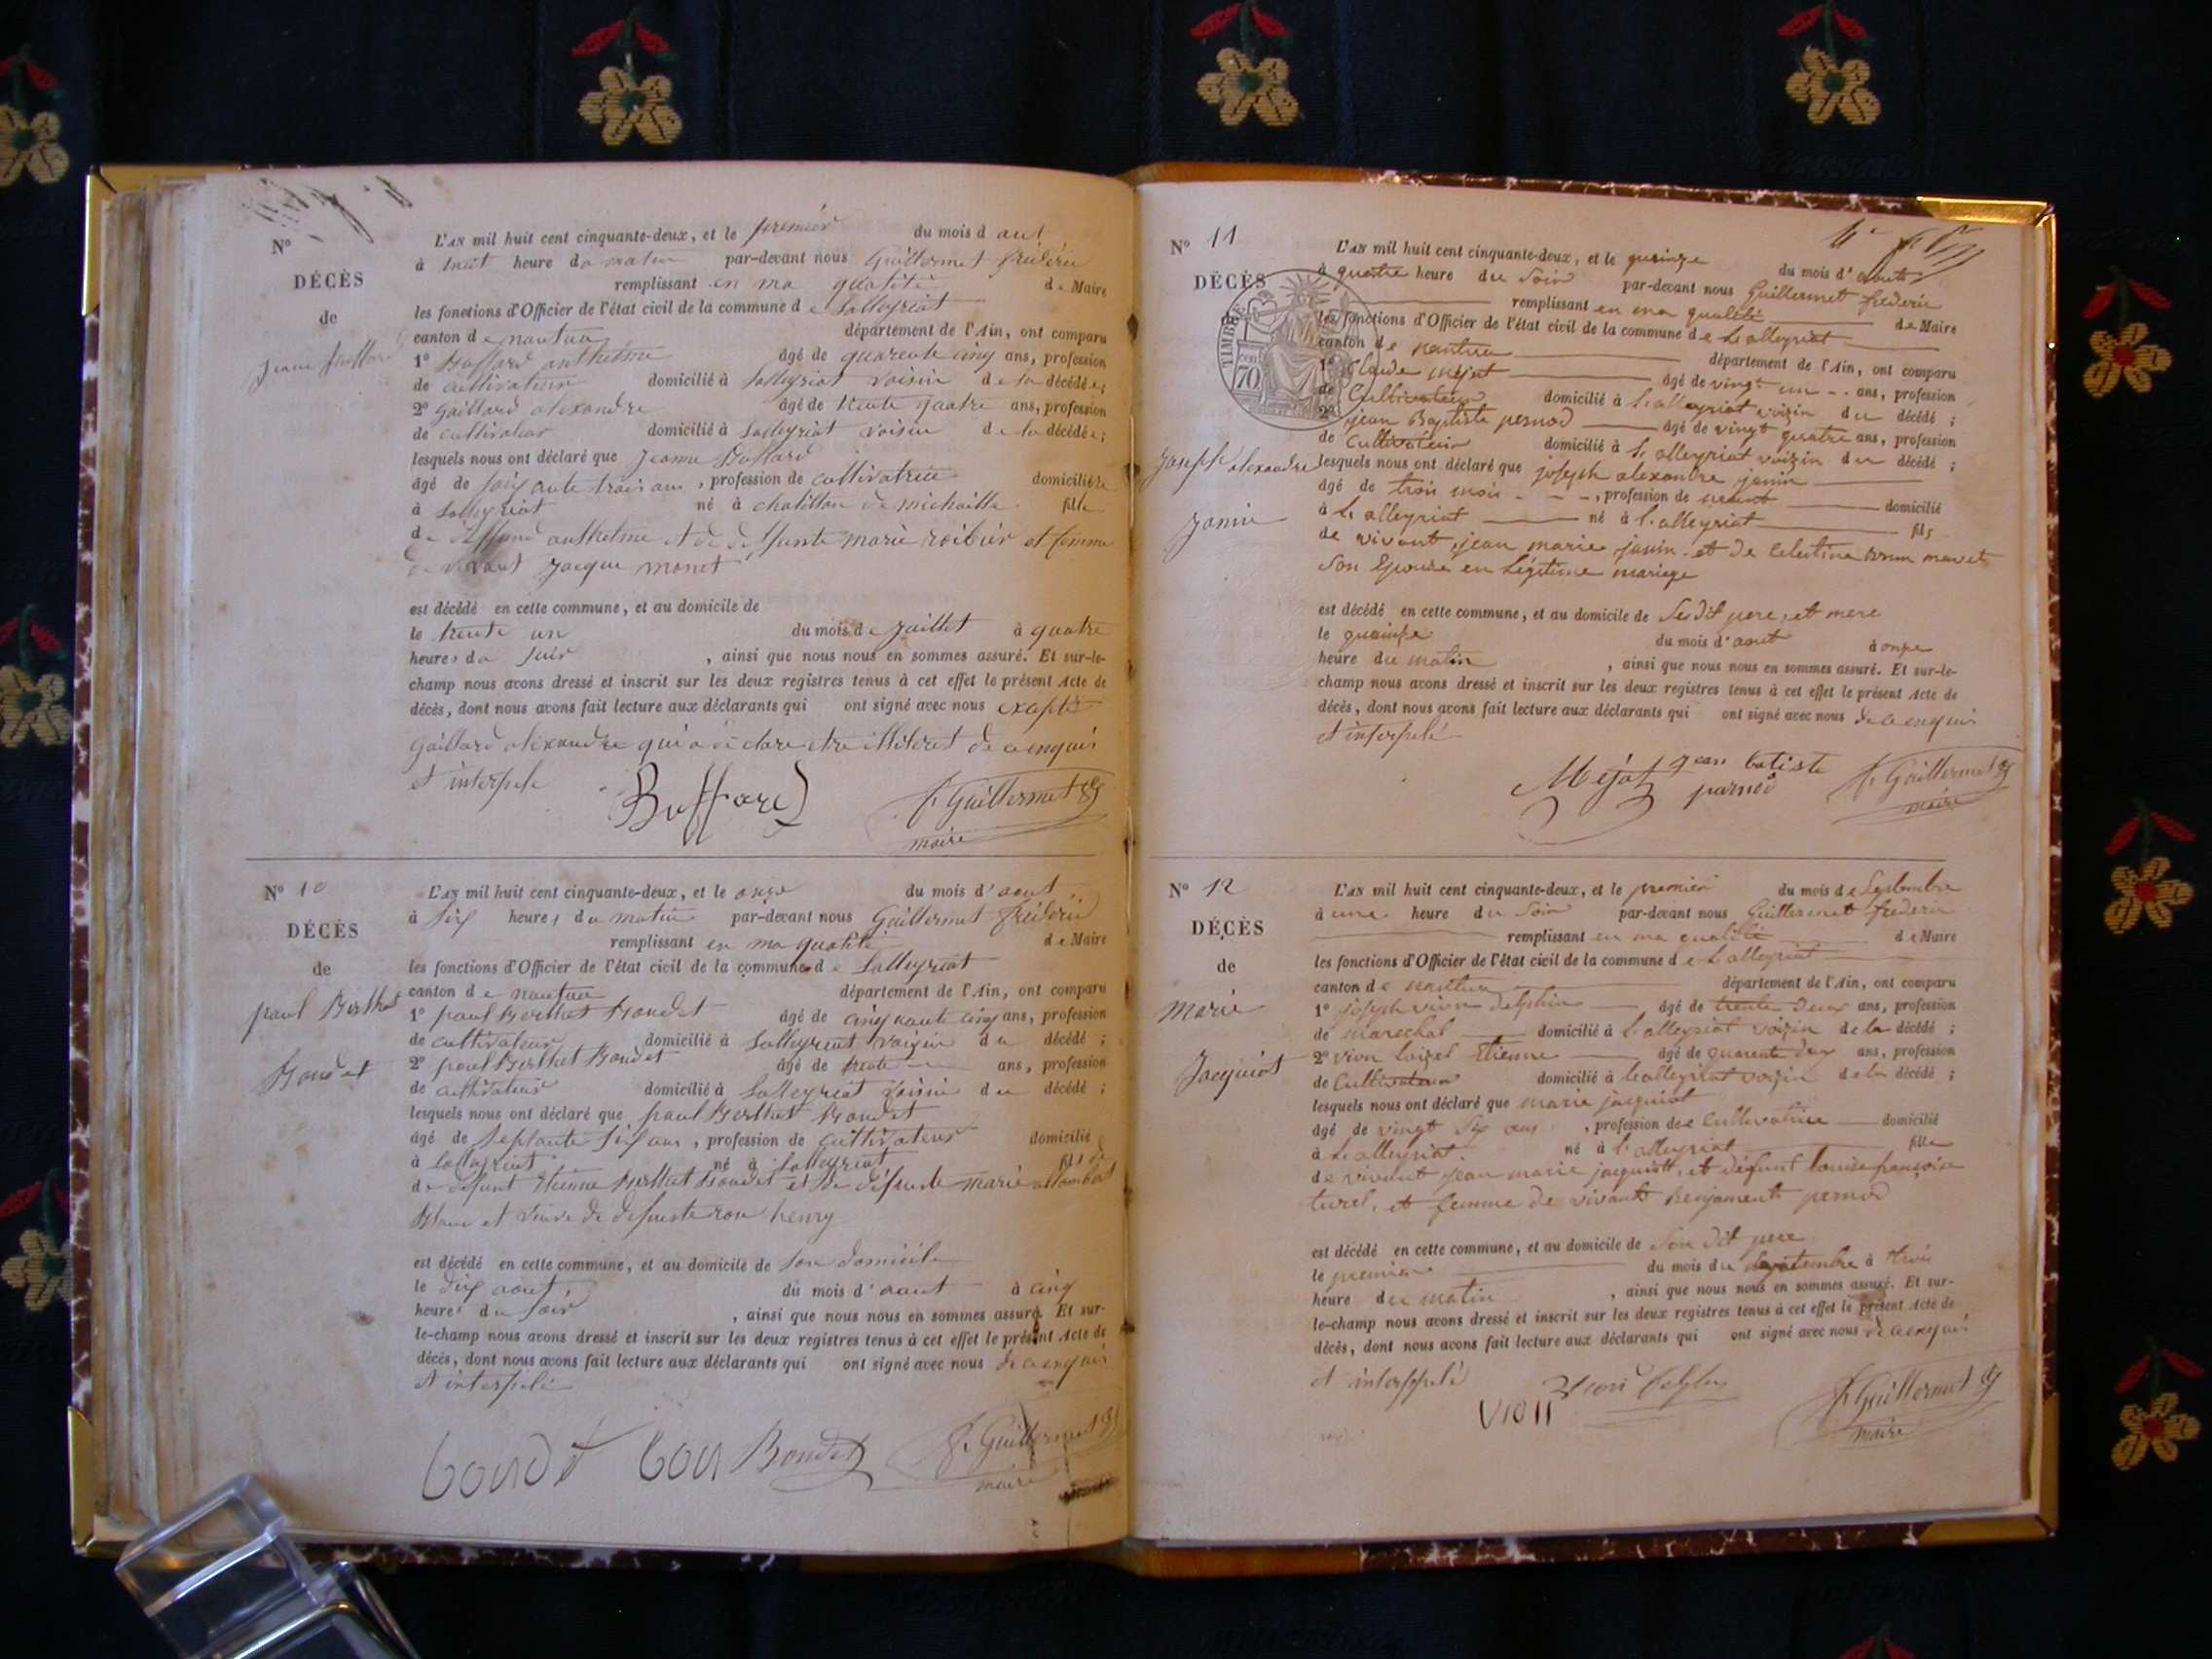 N°
DÉCÈS
de
Jeanne Buffard
L'AN mil huit cent cinquante-deux, et le premier du mois d aut
à huit heure du matin par-devant nous Guillermet frédéric
remplissant en ma qualité de Maire
les fonctions d'Officier de l'état civil de la commune de Lalleyriat
canton de nantua département de l'Ain, ont comparu
1° Buffard anthelme âgé de quarente cinq ans, profession
de cultivateur domicilié à Lalleyriat voisin de la décédée;
2° Gaillard alexandre âgé de trente quatre ans, profession
de cultivateur domicilié à Lalleyriat voisin de la décédée;
lesquels nous ont déclaré que Jeanne Buffard
âgé de soixante trois ans, profession de cultivatrice domiciliée
à Lalleyriat né à chatillon de michaille fille
de anthelme et de deffunte marie et femme
de vivant Jacque monet
est décédé en cette commune, et au domicile de
le trente un du mois de Juillet à quatre
heures du Soir , ainsi que nous nous en sommes assuré. Et sur-le-
champ nous avons dressé et inscrit sur les deux registres tenus à cet effet le présent Acte de
décès, dont nous avons fait lecture aux déclarants qui ont signé avec nous exapté
Gaillard alexandre qui a déclaré etre illiteret de ce enquis
et interpelé
Buffard
f. Guillermet
maire
N° 10
DÉCÈS
de
paul Berthet
Boudet
L'AN mil huit cent cinquante-deux, et le onze du mois d'aout
à Six heures du matin par-devant nous Guillermet frédéric
remplissant en ma qualité de Maire
les fonctions d'Officier de l'état civil de la commune de Lalleyriat
canton de nantua département de l'Ain, ont comparu
1° paul Berthet Boudet âgé de cinquante cinq ans, profession
de cultivateur domicilié à Lalleyriat voizin du décédé;
2° paul Berthet Boudet âgé de trente ans, profession
de cultivateur domicilié à Lalleyriat voisin du décédé;
lesquels nous ont déclaré que paul Berthet Boudet
âgé de Septante Six ans, profession de cultivateur domicilié
à Lalleyriat né à Lalleyriat fils
de défunt Etienne Berthet Boudet et de défunte marie
et de defunte henry
est décédé en cette commune, et au domicile de son domicile
le dix aout du mois d'aout à cinq
heures du soir , ainsi que nous nous en sommes assuré. Et sur-
le-champ nous avons dressé et inscrit sur les deux registres tenus à cet effet le présent Acte de
décès, dont nous avons fait lecture aux déclarants qui ont signé avec nous de ce enquis
et interpelé
Boudet
f. Guillermet
maire
N° 11
DÉCÈS
TIMBRE
70
Joseph alexandre
Janin
L'AN mil huit cent cinquante-deux, et le quainze du mois d'aout
à quatre heure du Soir par-devant nous Guillermet frederic
remplissant en ma qualité de Maire
les fonctions d'Officier de l'état civil de la commune de Lalleyriat
canton de nantua département de l'Ain, ont comparu
1° Claude mejat âgé de vingt un ans, profession
de Cultivateur domicilié à Lalleyriat voizin du décédé;
2° jean Baptiste pernod âgé de vingt quatre ans, profession
de Cultivateur domicilié à Lalleyriat voizin du décédé;
lesquels nous ont déclaré que joseph alexandre janin
âgé de trois mois, profession de neant domicilié
à Lalleyriat né à Lalleyriat fils
de vivant jean marie janin et de Celestine
Son Epouse en Légitime mariage
est décédé en cette commune, et au domicile de Sesdit pere et mere
le quainze du mois d'aout à onze
heure du matin , ainsi que nous nous en sommes assuré. Et sur-le-
champ nous avons dressé et inscrit sur les deux registres tenus à cet effet le présent Acte de
décès, dont nous avons fait lecture aux déclarants qui ont signé avec nous de ce enquis
et interpelé
Méjat jean batiste
parnod
f. Guillermet
maire
N° 12
DÉCÈS
de
Marie
Jacquiot
L'AN mil huit cent cinquante-deux, et le premier du mois de Septembre
à une heure du Soir par-devant nous Guillermet frederic
remplissant en ma qualité de Maire
les fonctions d'Officier de l'état civil de la commune de Lalleyriat
canton de nantua département de l'Ain, ont comparu
1° joseph vion delphin âgé de trente deux ans, profession
de marechal domicilié à Lalleyriat voizin de la décédé;
2° vion Loizel Etienne âgé de quarente deux ans, profession
de Cultivateur domicilié à Lealleyriat voizin de la décédé;
lesquels nous ont déclaré que marie jacquiot
âgé de vingt Six ans, profession de Cultivatrice domicilié
à Lealleyriat. né à Lalleyriat fille
de vivant jean marie jacquiot, et défunt Louise françoise
turel, et femme de vivant Benjament pernod
est décédé en cette commune, et au domicile de Son dit pere
le premier du mois du Septembre à trois
heure du matin , ainsi que nous nous en sommes assuré. Et sur-
le-champ nous avons dressé et inscrit sur les deux registres tenus à cet effet le présent Acte de
décès, dont nous avons fait lecture aux déclarants qui ont signé avec nous de ce enquis
et interppelé
Vion
f. Guillermet
maire